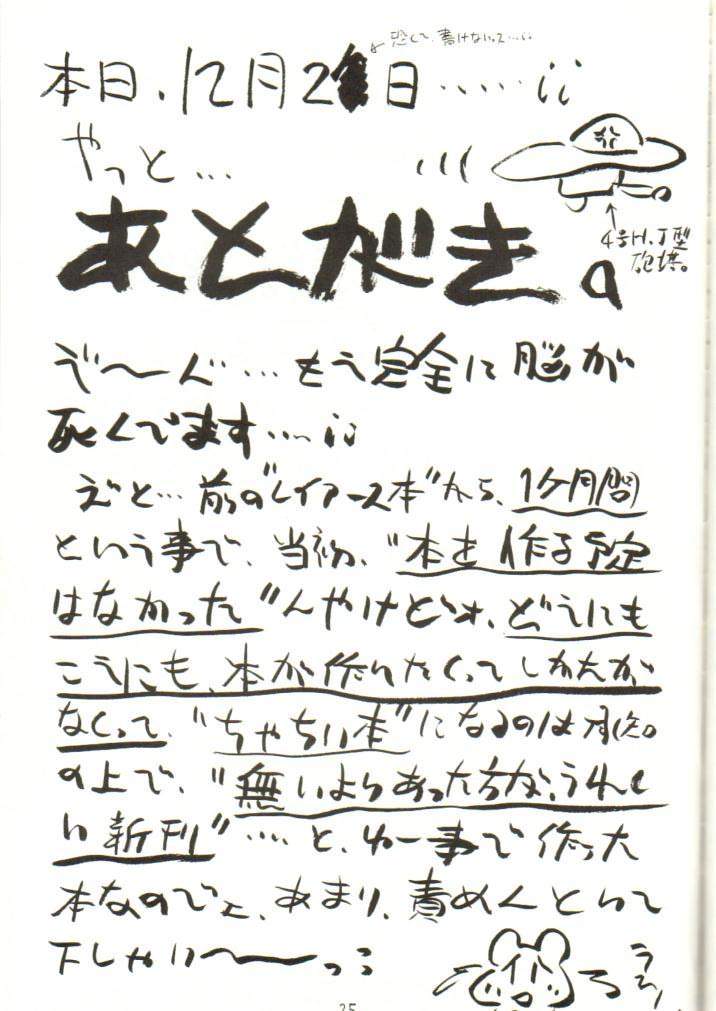 恐くて、書けないって……
本日、12月2 日……
やっと…
4号H、J型
砲塔。
あとがき
ぞ〜ん…もう完全に脳が
死んでます…
えと…前の"レイアース本"から、1ケ月間
という事で、当初、"本を作る予定
はなかった"んやけどォ、どうにも
こうにも、本が作りたくってしかたが
なくって、"ちゃちい本"になるのは承知。
の上で、"無いよりあった方が、うれし
い新刊"……と、ゆー事で作った
本なのでェ、あまり、責めんといて
下しゃい〜〜っ
25